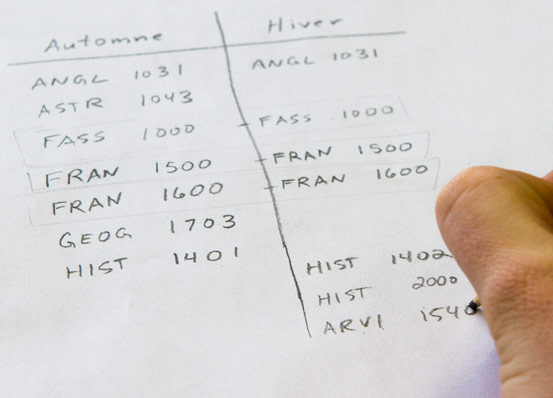 Automne Hiver
ANGL 1031 ANGL 1031
ASTR 1043
FASS 1000 FASS 1000
FRAN 1500 FRAN 1500
FRAN 1600 FRAN 1600
GEOG 1703
HIST 1401 HIST 1402
HIST 2000
ARVI 1540